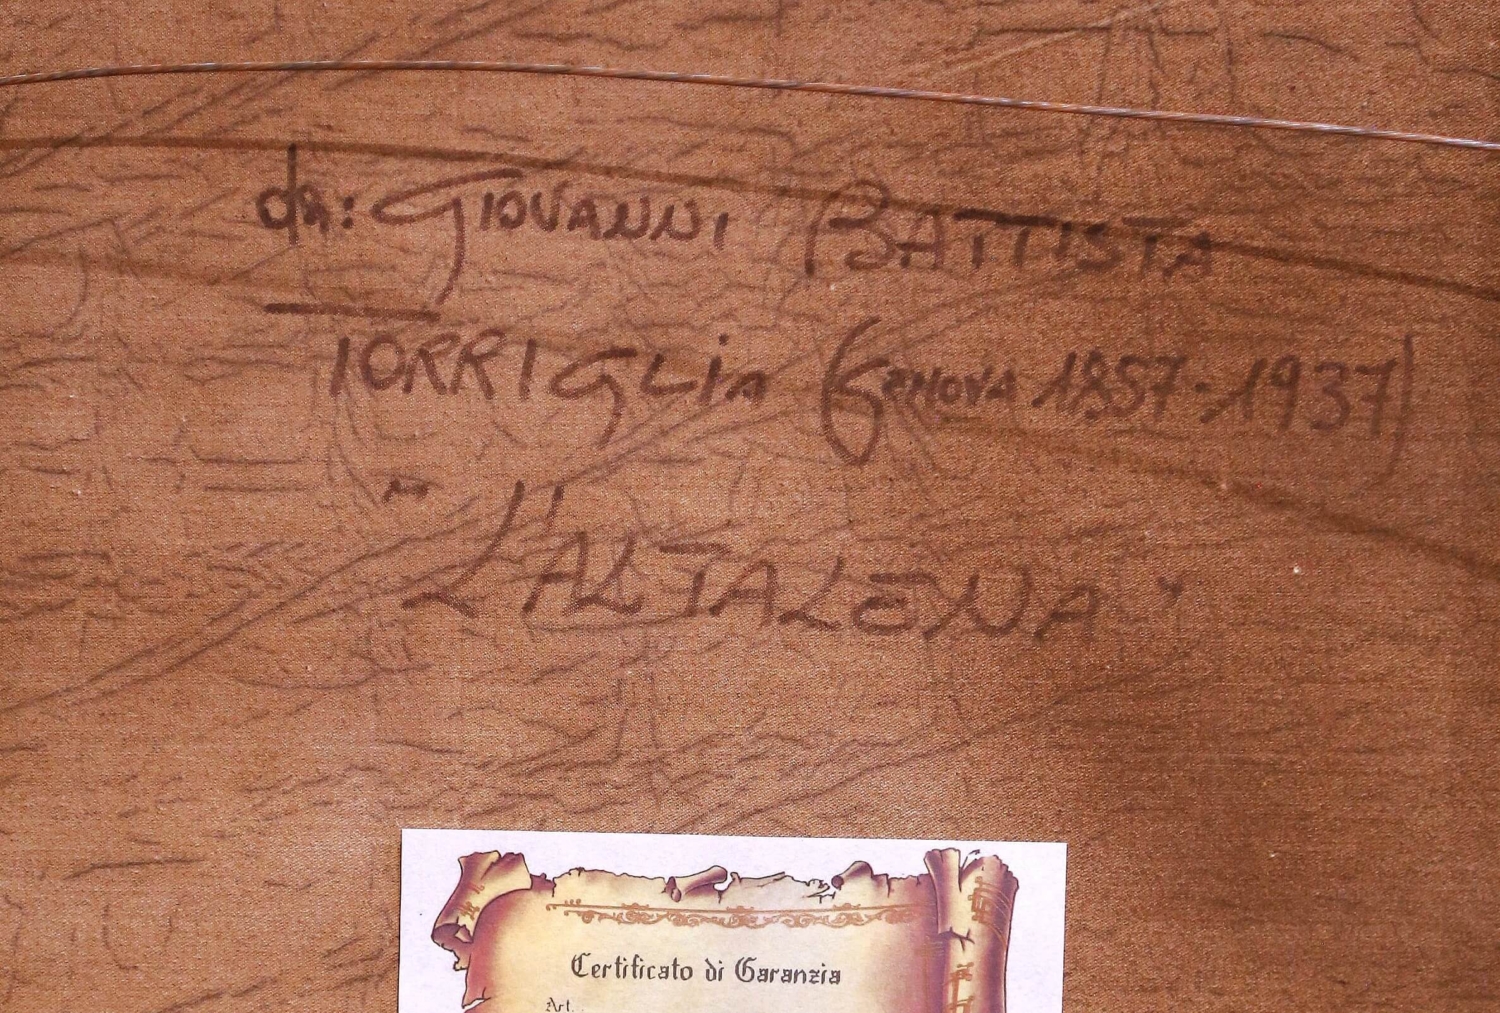 da: GIOVANNI BATTISTA
TORRIGLIA (GENOVA 1857-1937)
"L'ALTALENA"
Certificato di Garanzia
Art.